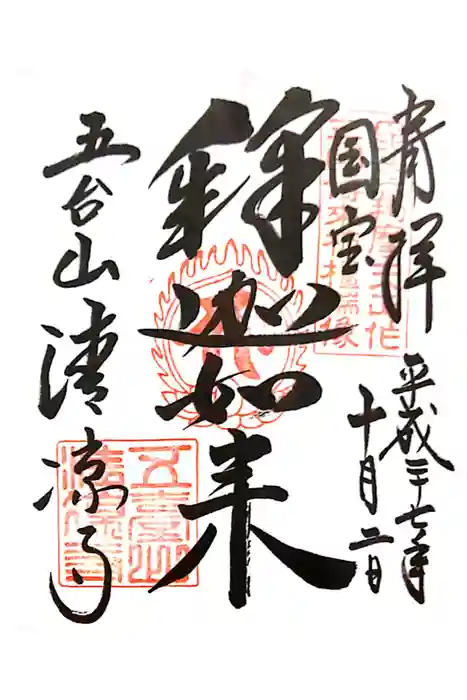 奉拝
平成二十七年
十月二日
国宝
釋迦如来
五台山清凉寺
五臺山
清凉寺